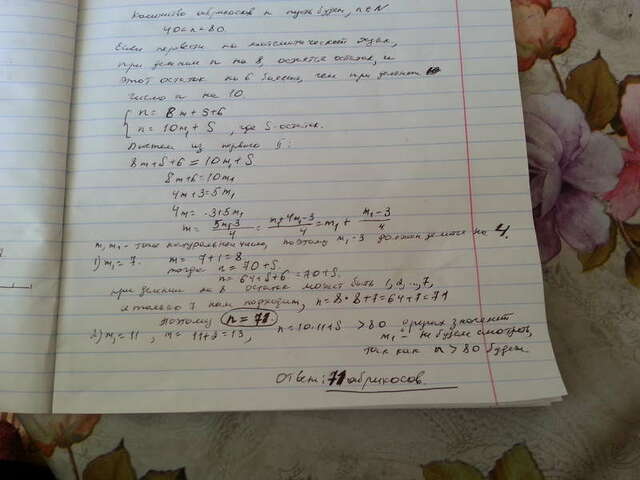 Количество абрикосов n пусть будет, n ∈ N
40<n<80.
Если перевести на математический язык,
при делении n на 8, остается остаток, и
этот остаток на 6 больше, чем при делении
число n на 10.
{ n = 8m + S+6
n = 10m₁ + S, где S-остаток.
из первого
8m+S+6 = 10m₁+S
8m+6=10m₁
4m+3=5m₁
4m = -3+5m₁
m = (5m₁-3)/4 = (m₁+4m₁-3)/4 = m₁ + (m₁-3)/4
m, m₁ - тоже натуральные числа, поэтому m₁-3 должен делится на 4.
1) m₁=7. m = 7+1=8
тогда n = 70+S.
n = 64+S+6=70+S.
при делении на 8 остаток может быть 1,2,...,7,
и только 7 нам подходит, n=8*8+7=64+7=71
Поэтому n = 71.
2) m₁=11, m = 11+2=13, n=10·11+S >80 других значений
m₁ - не будем смотреть,
так как n>80 будет.
Ответ: 71 абрикосов.